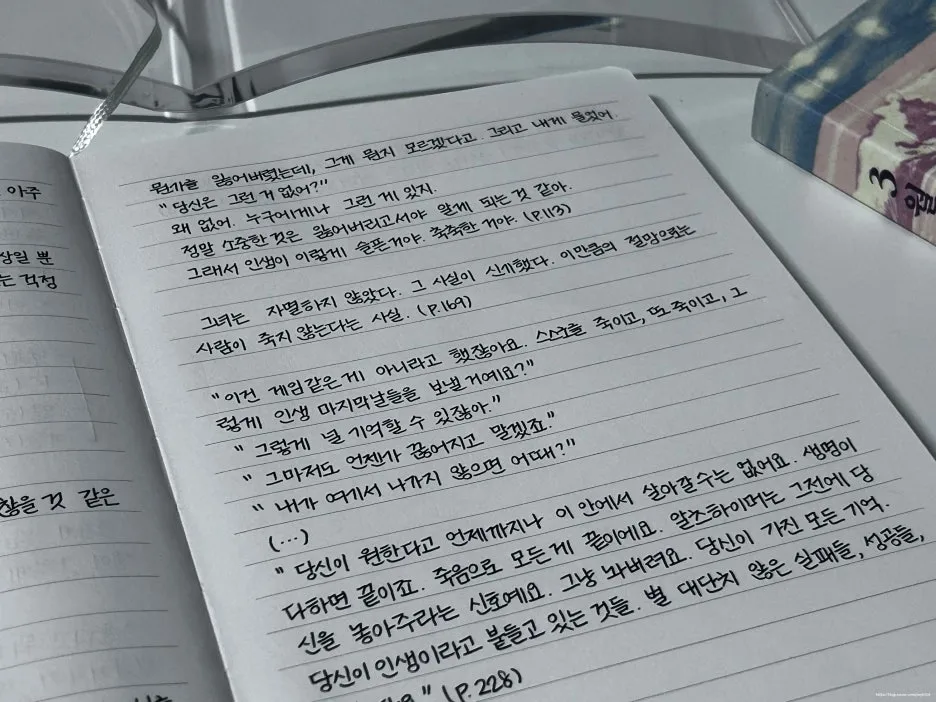 아주
상일 뿐
는 걱정
찮을 것 같은
뭔가를 잃어버렸는데, 그게 뭔지 모르겠다고 그리고 내게 물었어.
"당신은 그런 거 없어?"
왜 없어. 누구에게나 그런 게 있지.
정말 소중한 것은 잃어버리고서야 알게 되는 것 같아.
그래서 인생이 이렇게 슬픈거야. 축축한 거야. (P.113)
그녀는 자멸하지 않았다. 그 사실이 신기했다. 이만큼의 절망으로는
사람이 죽지 않는다는 사실. (P.169)
"이건 게임같은게 아니라고 했잖아요. 스스로를 죽이고, 또 죽이고, 그
렇게 인생 마지막날들을 보낼 거예요?"
"그렇게 널 기억할 수 있잖아."
"그마저도 언젠가 끊어지고 말겠죠."
"내가 여기서 나가지 않으면 어때?"
(…)
"당신이 원한다고 언제까지나 이 안에서 살아갈 수는 없어요. 생명이
다하면 끝이죠. 죽음으로 모든게 끝이에요. 알츠하이머는 그전에 당
신을 놓아주라는 신호예요. 그냥 놔버려요. 당신이 가진 모든 기억.
당신이 인생이라고 붙들고 있는 것들. 별 대단치 않은 실패들, 성공들,
" (P.228)
3